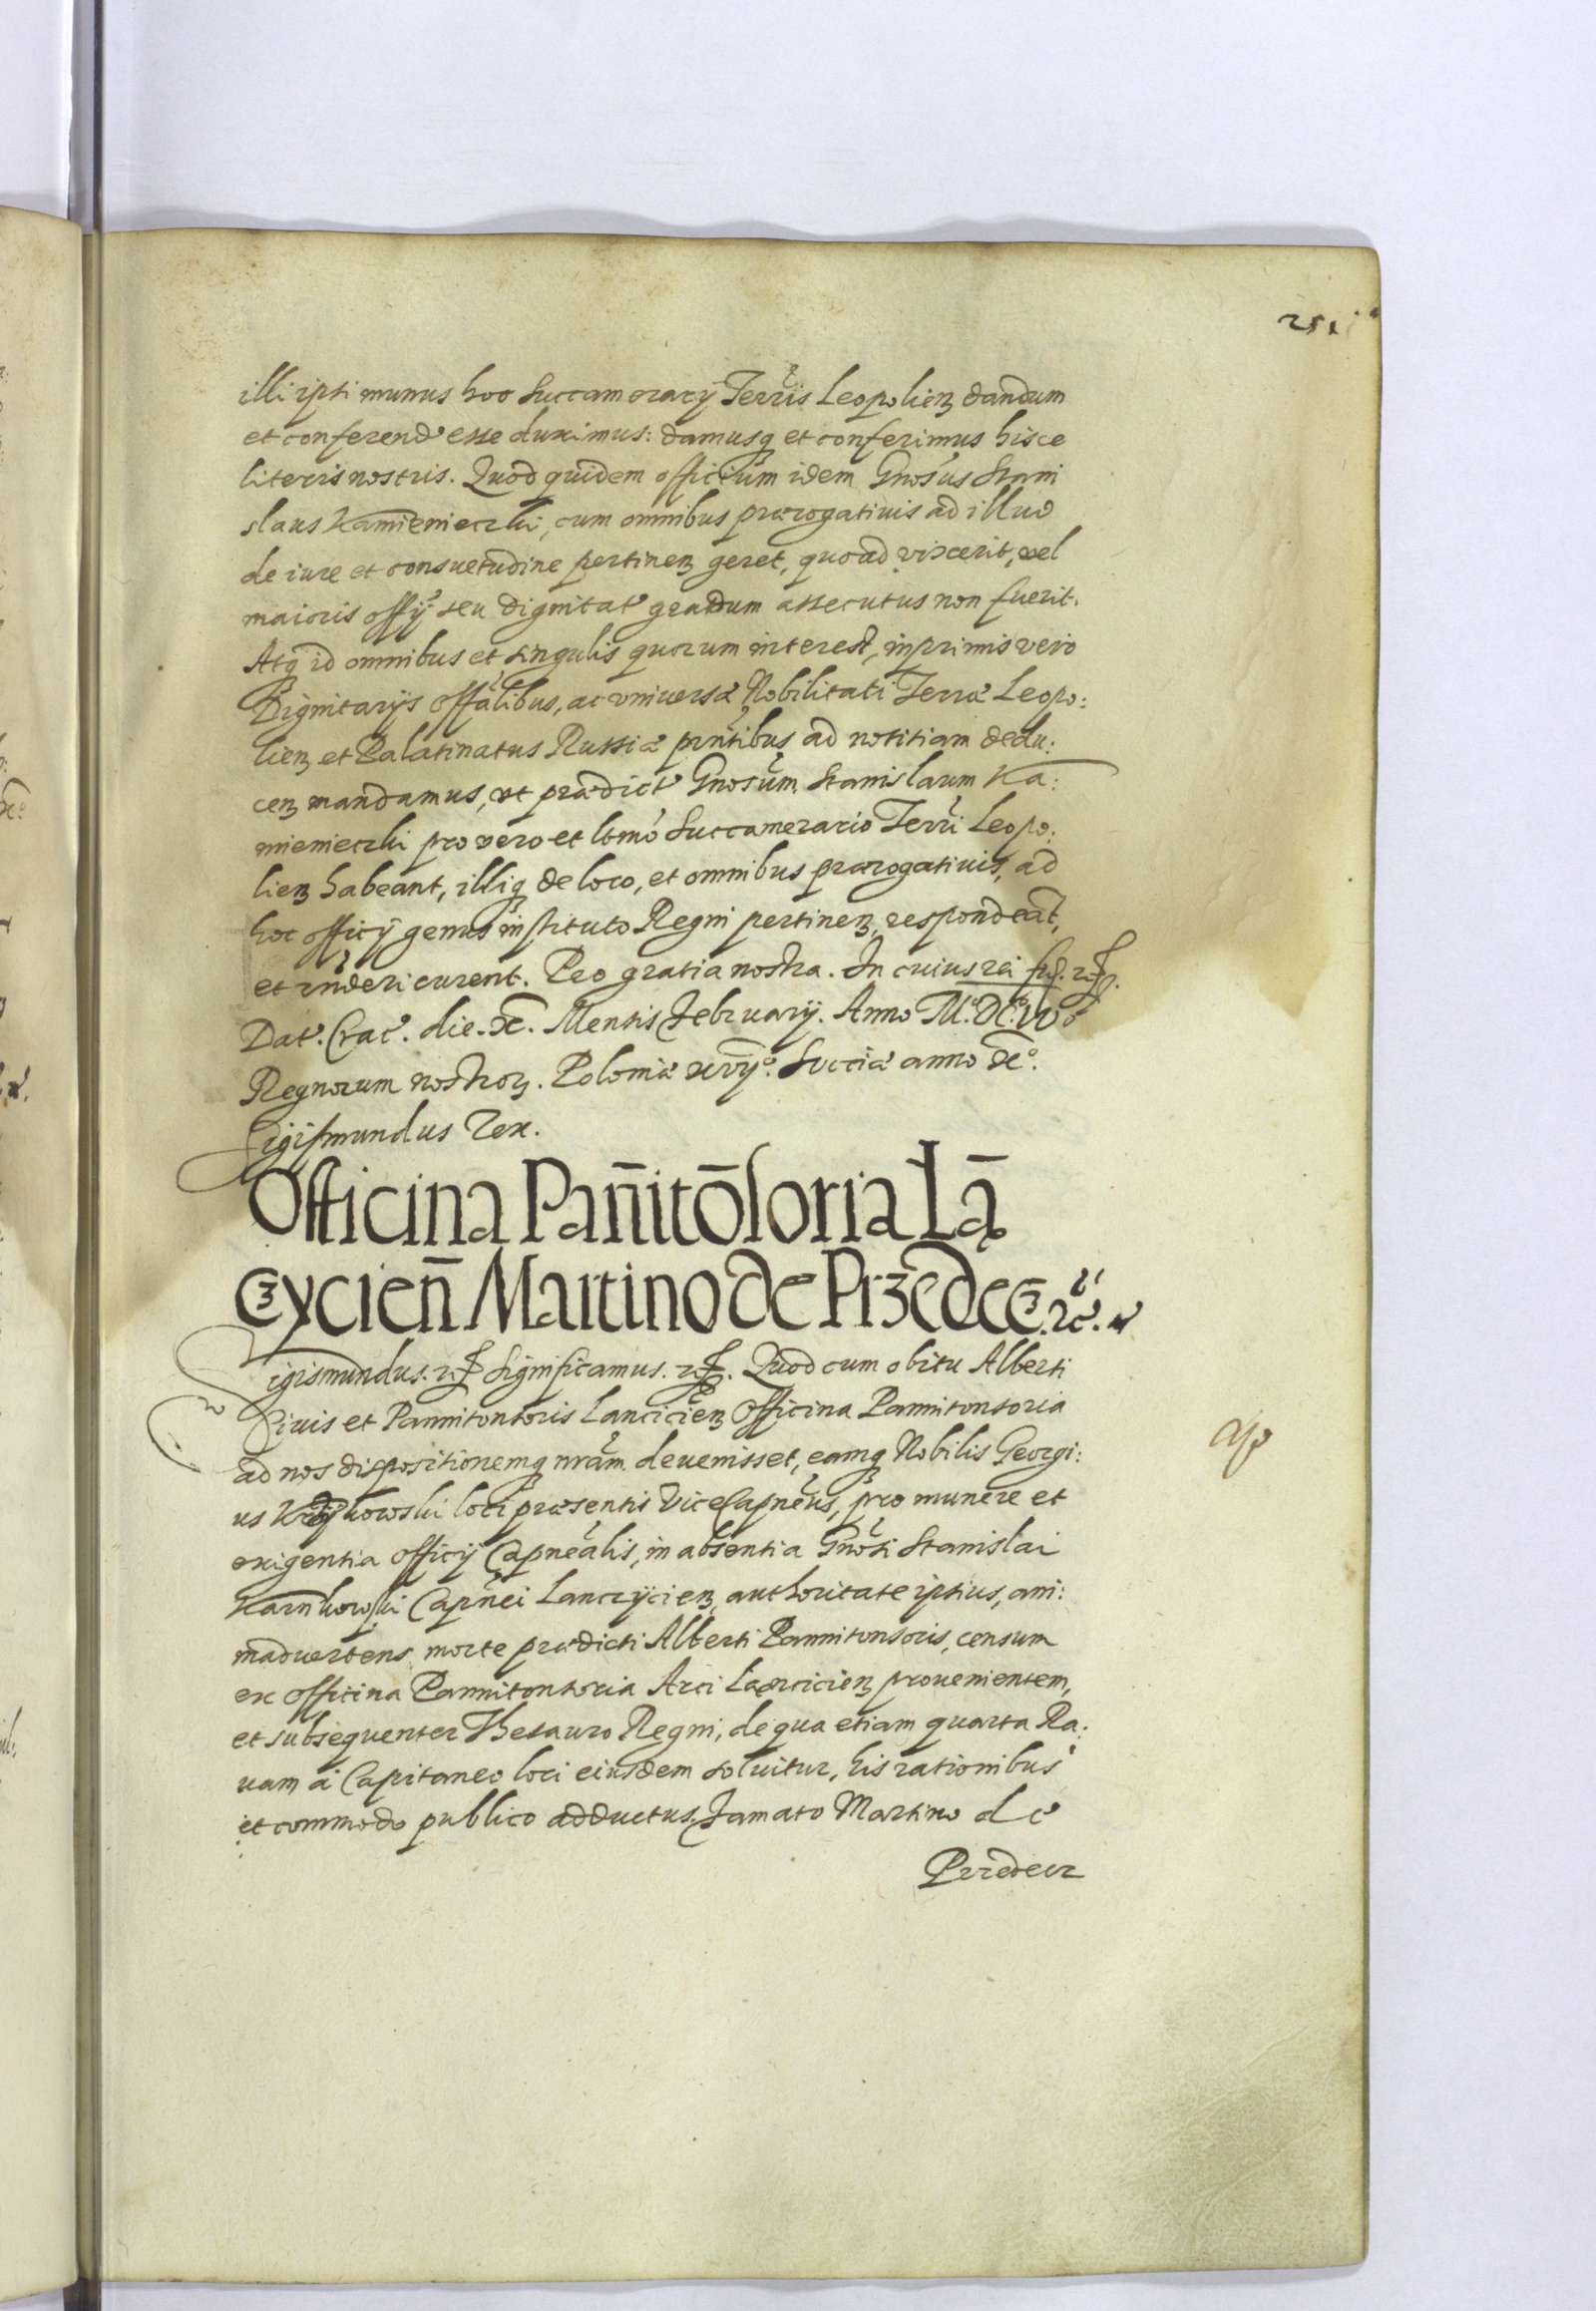 251
illi ipsi munus hoc Succamerarij Terr̃is Leopolieñ dandum
et conferend' esse duximus: damusq₃ et conferimus hisce
literis nostris. Quod quidem officium idem Gnosus Stani
slaus Kamienieczki, cum omnibus prærogatiuis ad illud
de iure et consuetudine pertineñ geret, quoad vixerit, vel
maioris offij seu dignitat' gradum assecutus non fuerit.
Atq₃ id omnibus et singulis quorum interest, inprimis vero
Dignitarijs offalibus, ac vniuersæ Nobilitati Terræ Leopo:
lieñ et Palatinatus Russiæ pr̃ntibus ad notitiam dedu:
ceñ mandamus, vt prædict' Gnosum Stanislaum Ka:
mienieczki pro vero et ltmo Succamerario Terri Leopo:
lieñ habeant, illiq₃ de loco, et omnibus prærogatiuis, ad
hoc officij genus instituto Regni pertineñ, respondeat,
et rnderi curent. Pro gratia nostra. In cuius rei
Dat'. Crac'. die. X. Mensis February. Anno M.DC.IVo
Regnorum nostror₃. Poloniæ xvijo. Sueciæ anno Xo.
Sigismundus Rex.
Officina Pañitõsoria Lą
czycieñ Martino de Przedecz. rc̃.
Sigismundus. Significamus. Quod cum obitu Alberti
Ciuis et Pannitonsoris Lancicieñ Officina Pannitonsoria
ad nos dispositionemq₃ nram deuenisset, eamq₃ Nobilis Georgi:
us loci præsentis Vice Capneus, pro munere et
exigentia officij Capnealis, in absentia Gnosi Stanislai
Karnkowski Capnei Lanczycieñ, authoritate ipsius, ani:
maduertens morte prædicti Alberti Pannitonsoris, censum
ex officina Pannitonsoria Arci Lancicieñ prouenientem,
et subsequenter Thesauro Regni, de qua etiam quarta Ra:
uam à Capitaneo loci eiusdem soluitur, his rationibus
et commodo publico adductus, Famato Martino de
Przedecz